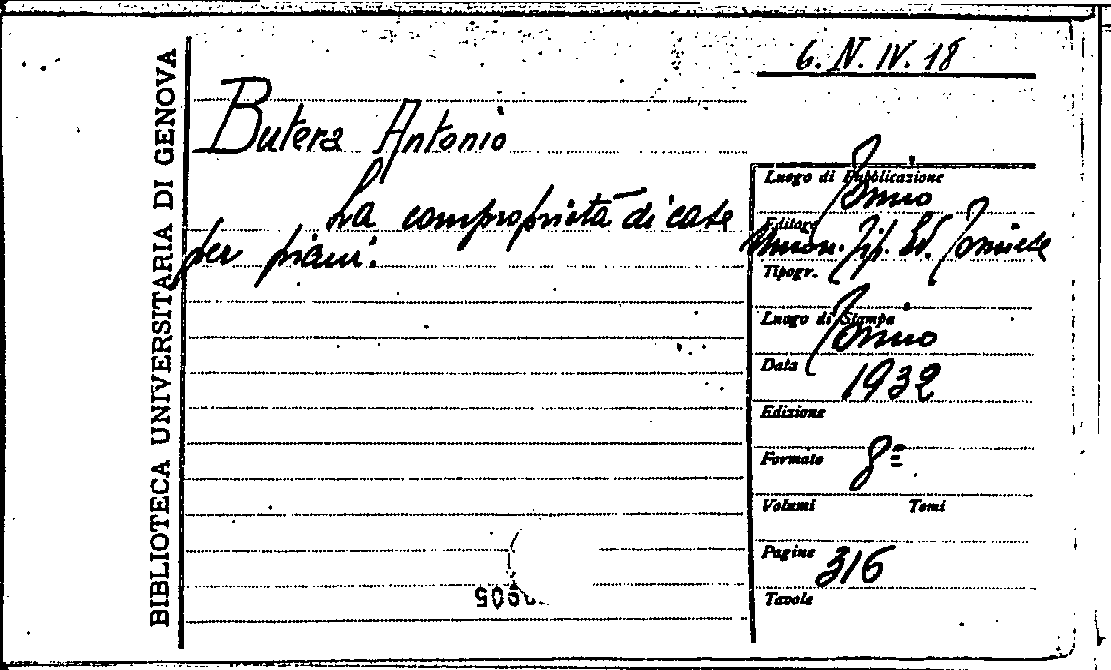 BIBLIOTECA UNIVERSITARIA DI GENOVA
6. N. IV. 18
Butera Antonio
La comproprietà di case
per piani.
Luogo di Pubblicazione
Torino
Editore
Union. Tip. Ed. Torinese
Tipogr.
Luogo di Stampa
Torino
Data
1932
Edizione
Formato 8=
Volumi Tomi
Pagine 316
Tavole